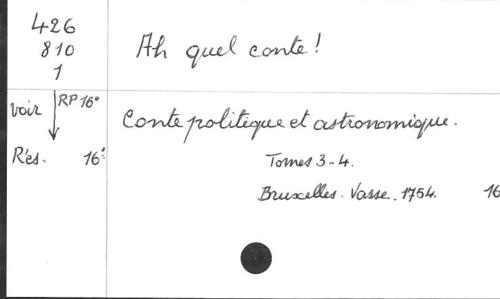 426
810
1
Ah quel conte !
voir RP 16°
Rés. 16°
Conte politique et astronomique.
Tomes 3-4.
Bruxelles. Vasse. 1754. 16